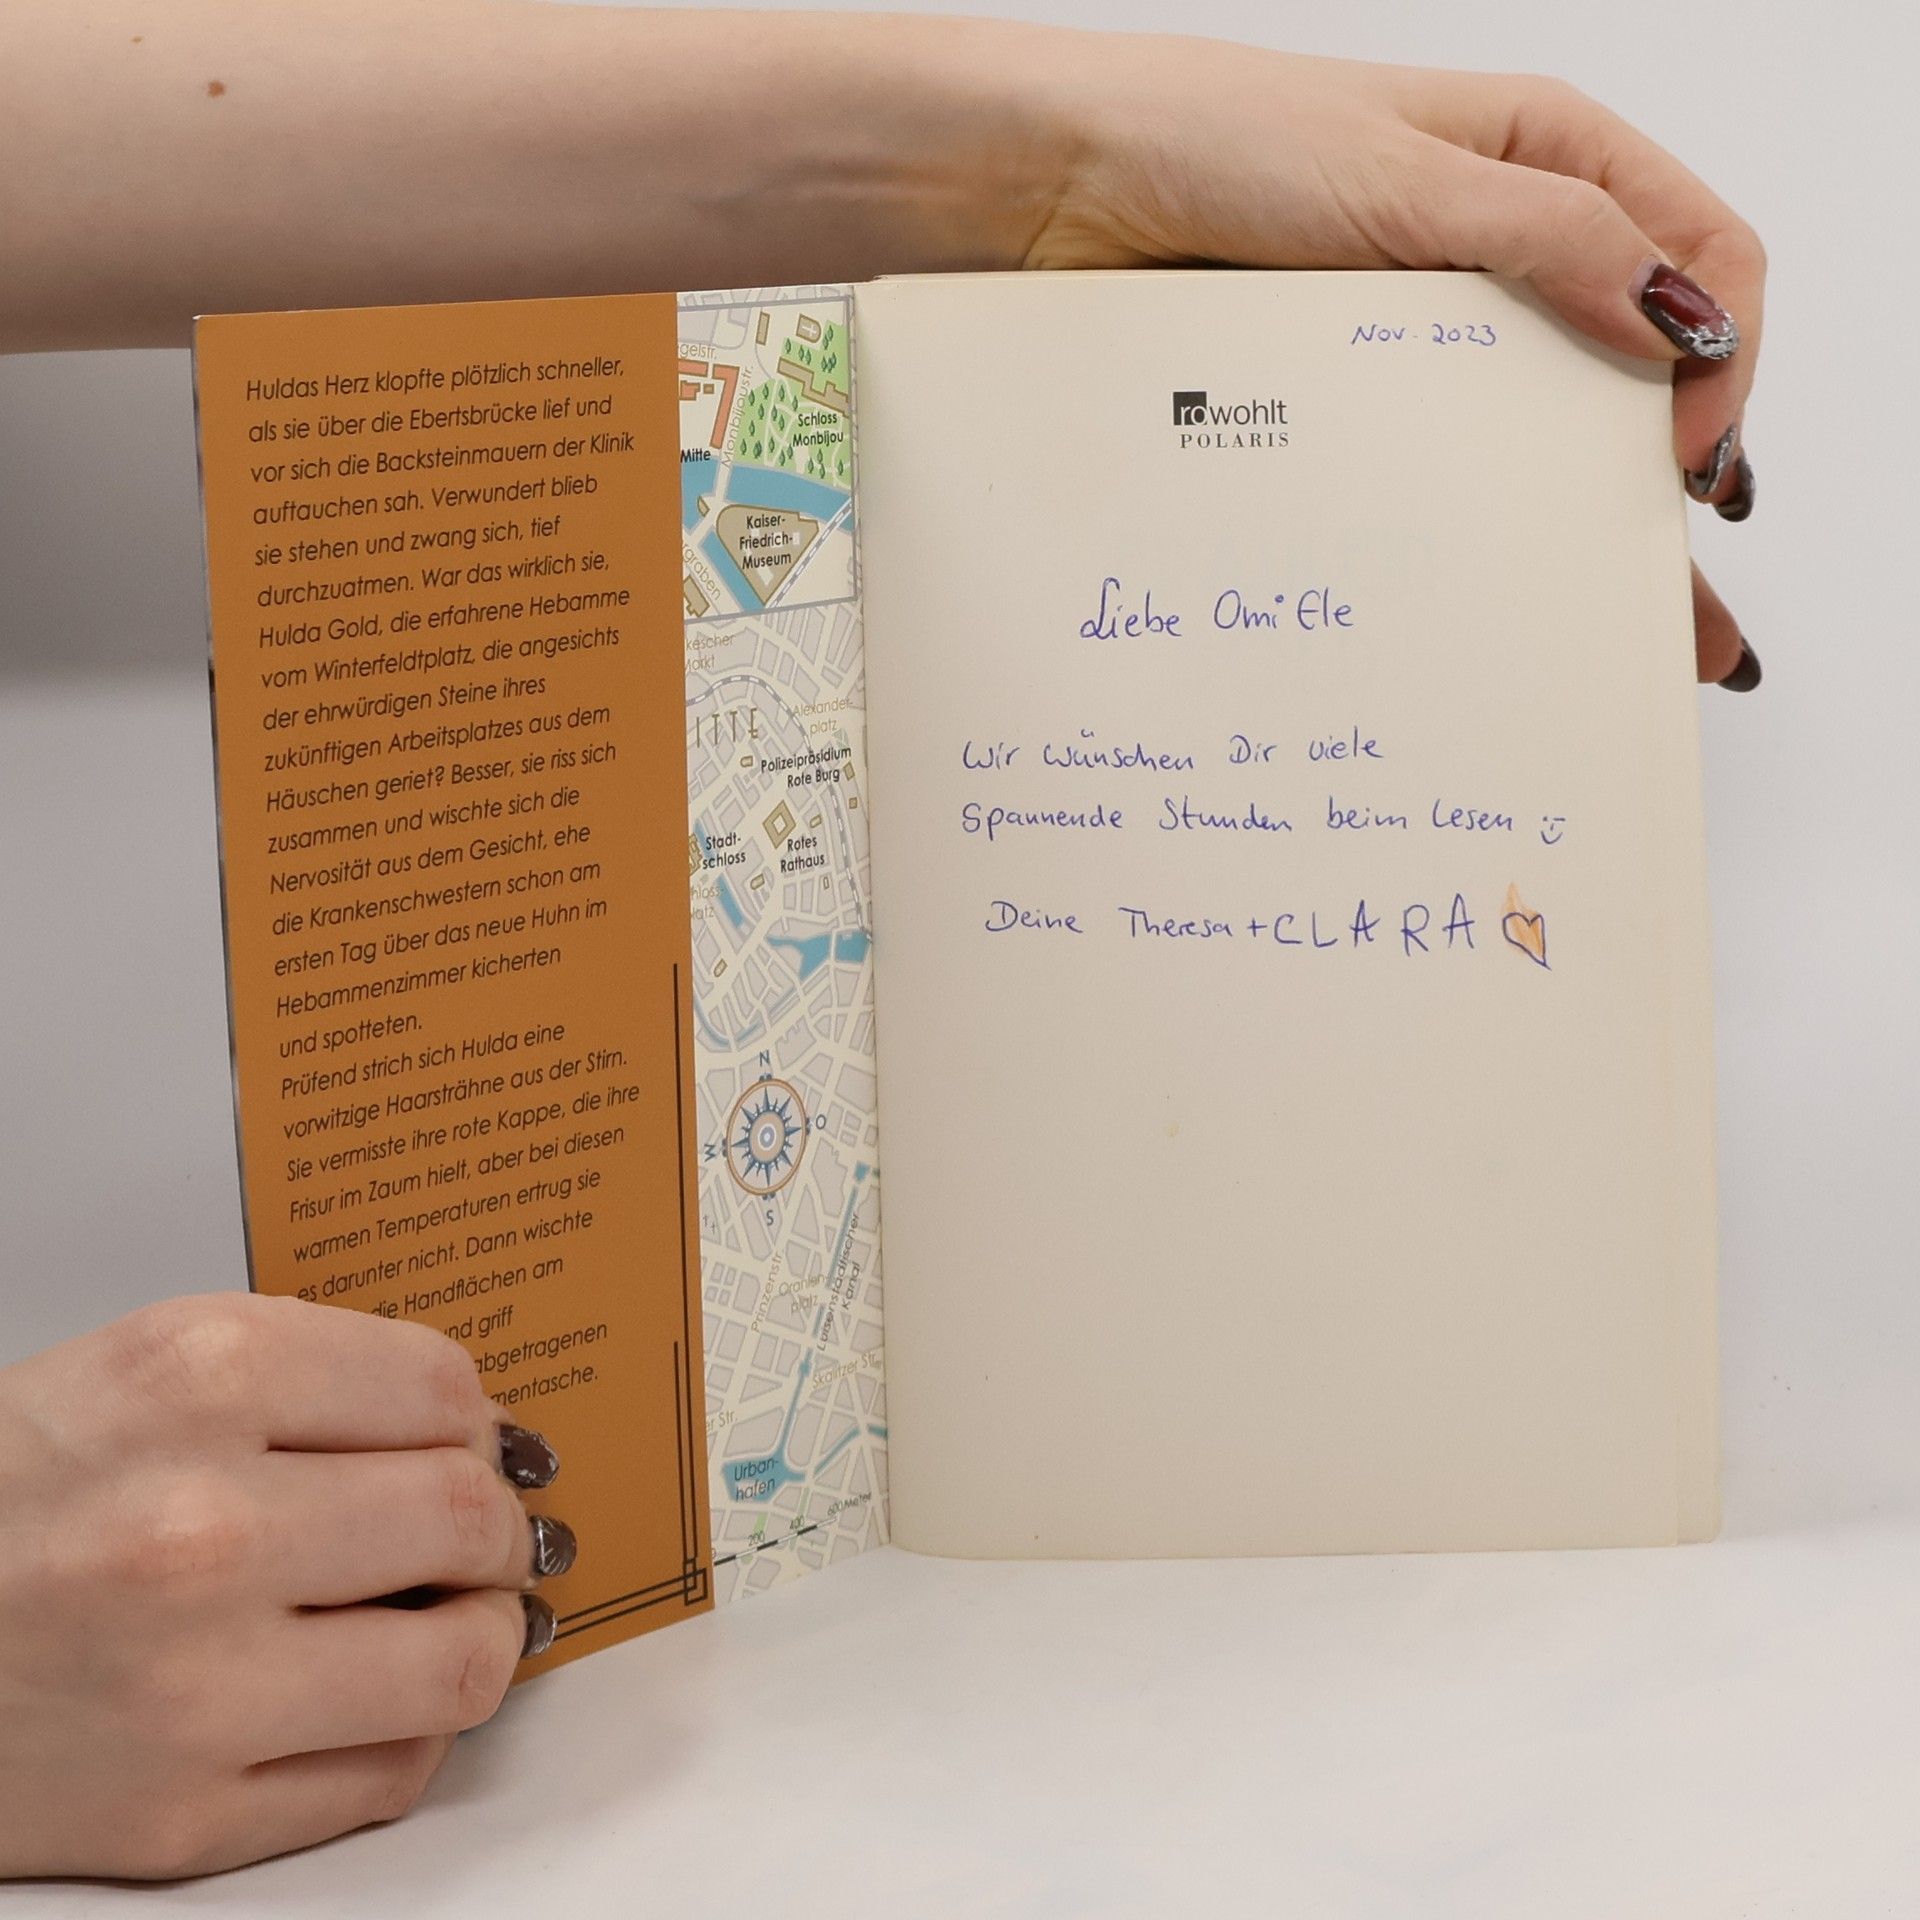 Huldas Herz klopfte plötzlich schneller,
als sie über die Ebertsbrücke lief und
vor sich die Backsteinmauern der Klinik
auftauchen sah. Verwundert blieb
sie stehen und zwang sich, tief
durchzuatmen. War das wirklich sie,
Hulda Gold, die erfahrene Hebamme
vom Winterfeldtplatz, die angesichts
der ehrwürdigen Steine ihres
zukünftigen Arbeitsplatzes aus dem
Häuschen geriet? Besser, sie riss sich
zusammen und wischte sich die
Nervosität aus dem Gesicht, ehe
die Krankenschwestern schon am
ersten Tag über das neue Huhn im
Hebammenzimmer kicherten
und spotteten.
Prüfend strich sich Hulda eine
vorwitzige Haarsträhne aus der Stirn.
Sie vermisste ihre rote Kappe, die ihre
Frisur im Zaum hielt, aber bei diesen
warmen Temperaturen ertrug sie
es darunter nicht. Dann wischte
die Handflächen am
und griff
abgetragenen
mentasche.
gelstr.
Monbijoustr.
Schloss
Monbijou
Mitte
Kaiser-
Friedrich-
Museum
rgraben
kescher
Markt
ITTE
Alexander-
platz
Polizeipräsidium
Rote Burg
Stadt-
schloss
Rotes
Rathaus
hloss-
latz
N
W
O
S
Prinzenstr.
Oranien-
platz
Luisenstädtischer
Kanal
Skalitzer Str.
er Str.
Urban-
hafen
200
400
600 Meter
Nov. 2023
rowohlt
POLARIS
Liebe Omi Ele
Wir wünschen Dir viele
Spannende Stunden beim Lesen :-)
Deine Theresa + CLARA ♡